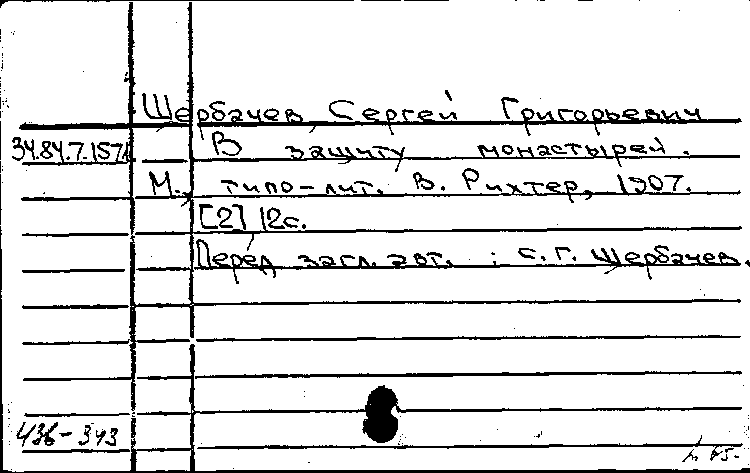 Щербачев, Сергей Григорьевич
34.84.7.157
В защиту монастырей.
М., типо-лит. В. Рихтер, 1907.
[2] 12с.
Перед загл. авт. : С.Г. Щербачев.
436-343